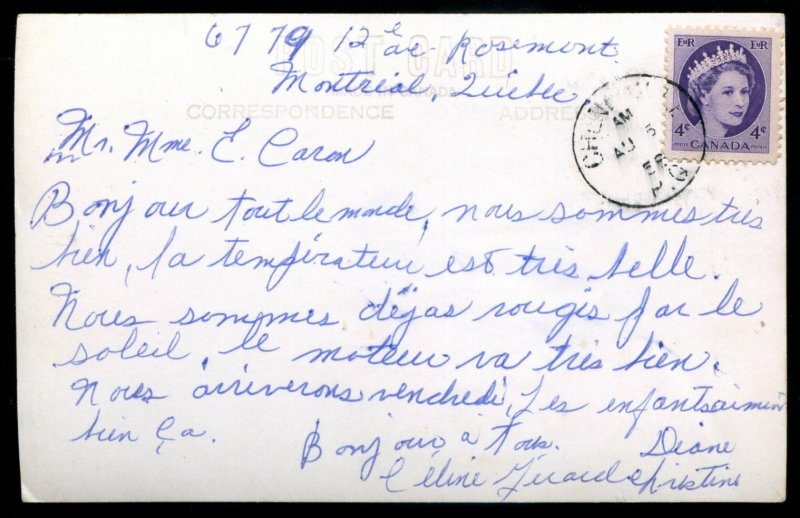 6779 12e ave Rosemont
POST CARD
Montréal, Québec
CORRESPONDENCE
ADDRE
Mr. Mme. E. Caron
Bonjour tout le monde, nous sommes très
bien, la température est très belle.
Nous sommes déjas rougis par le
soleil, le moteur va très bien.
Nous arriverons vendredi, Les enfants aiment
bien ça.
Bonjour à Tous. Diane
Céline Girard Christine
EIIR EIIR
4¢ 4¢
POSTES CANADA POSTAGE
AM
AU 5
P.Q